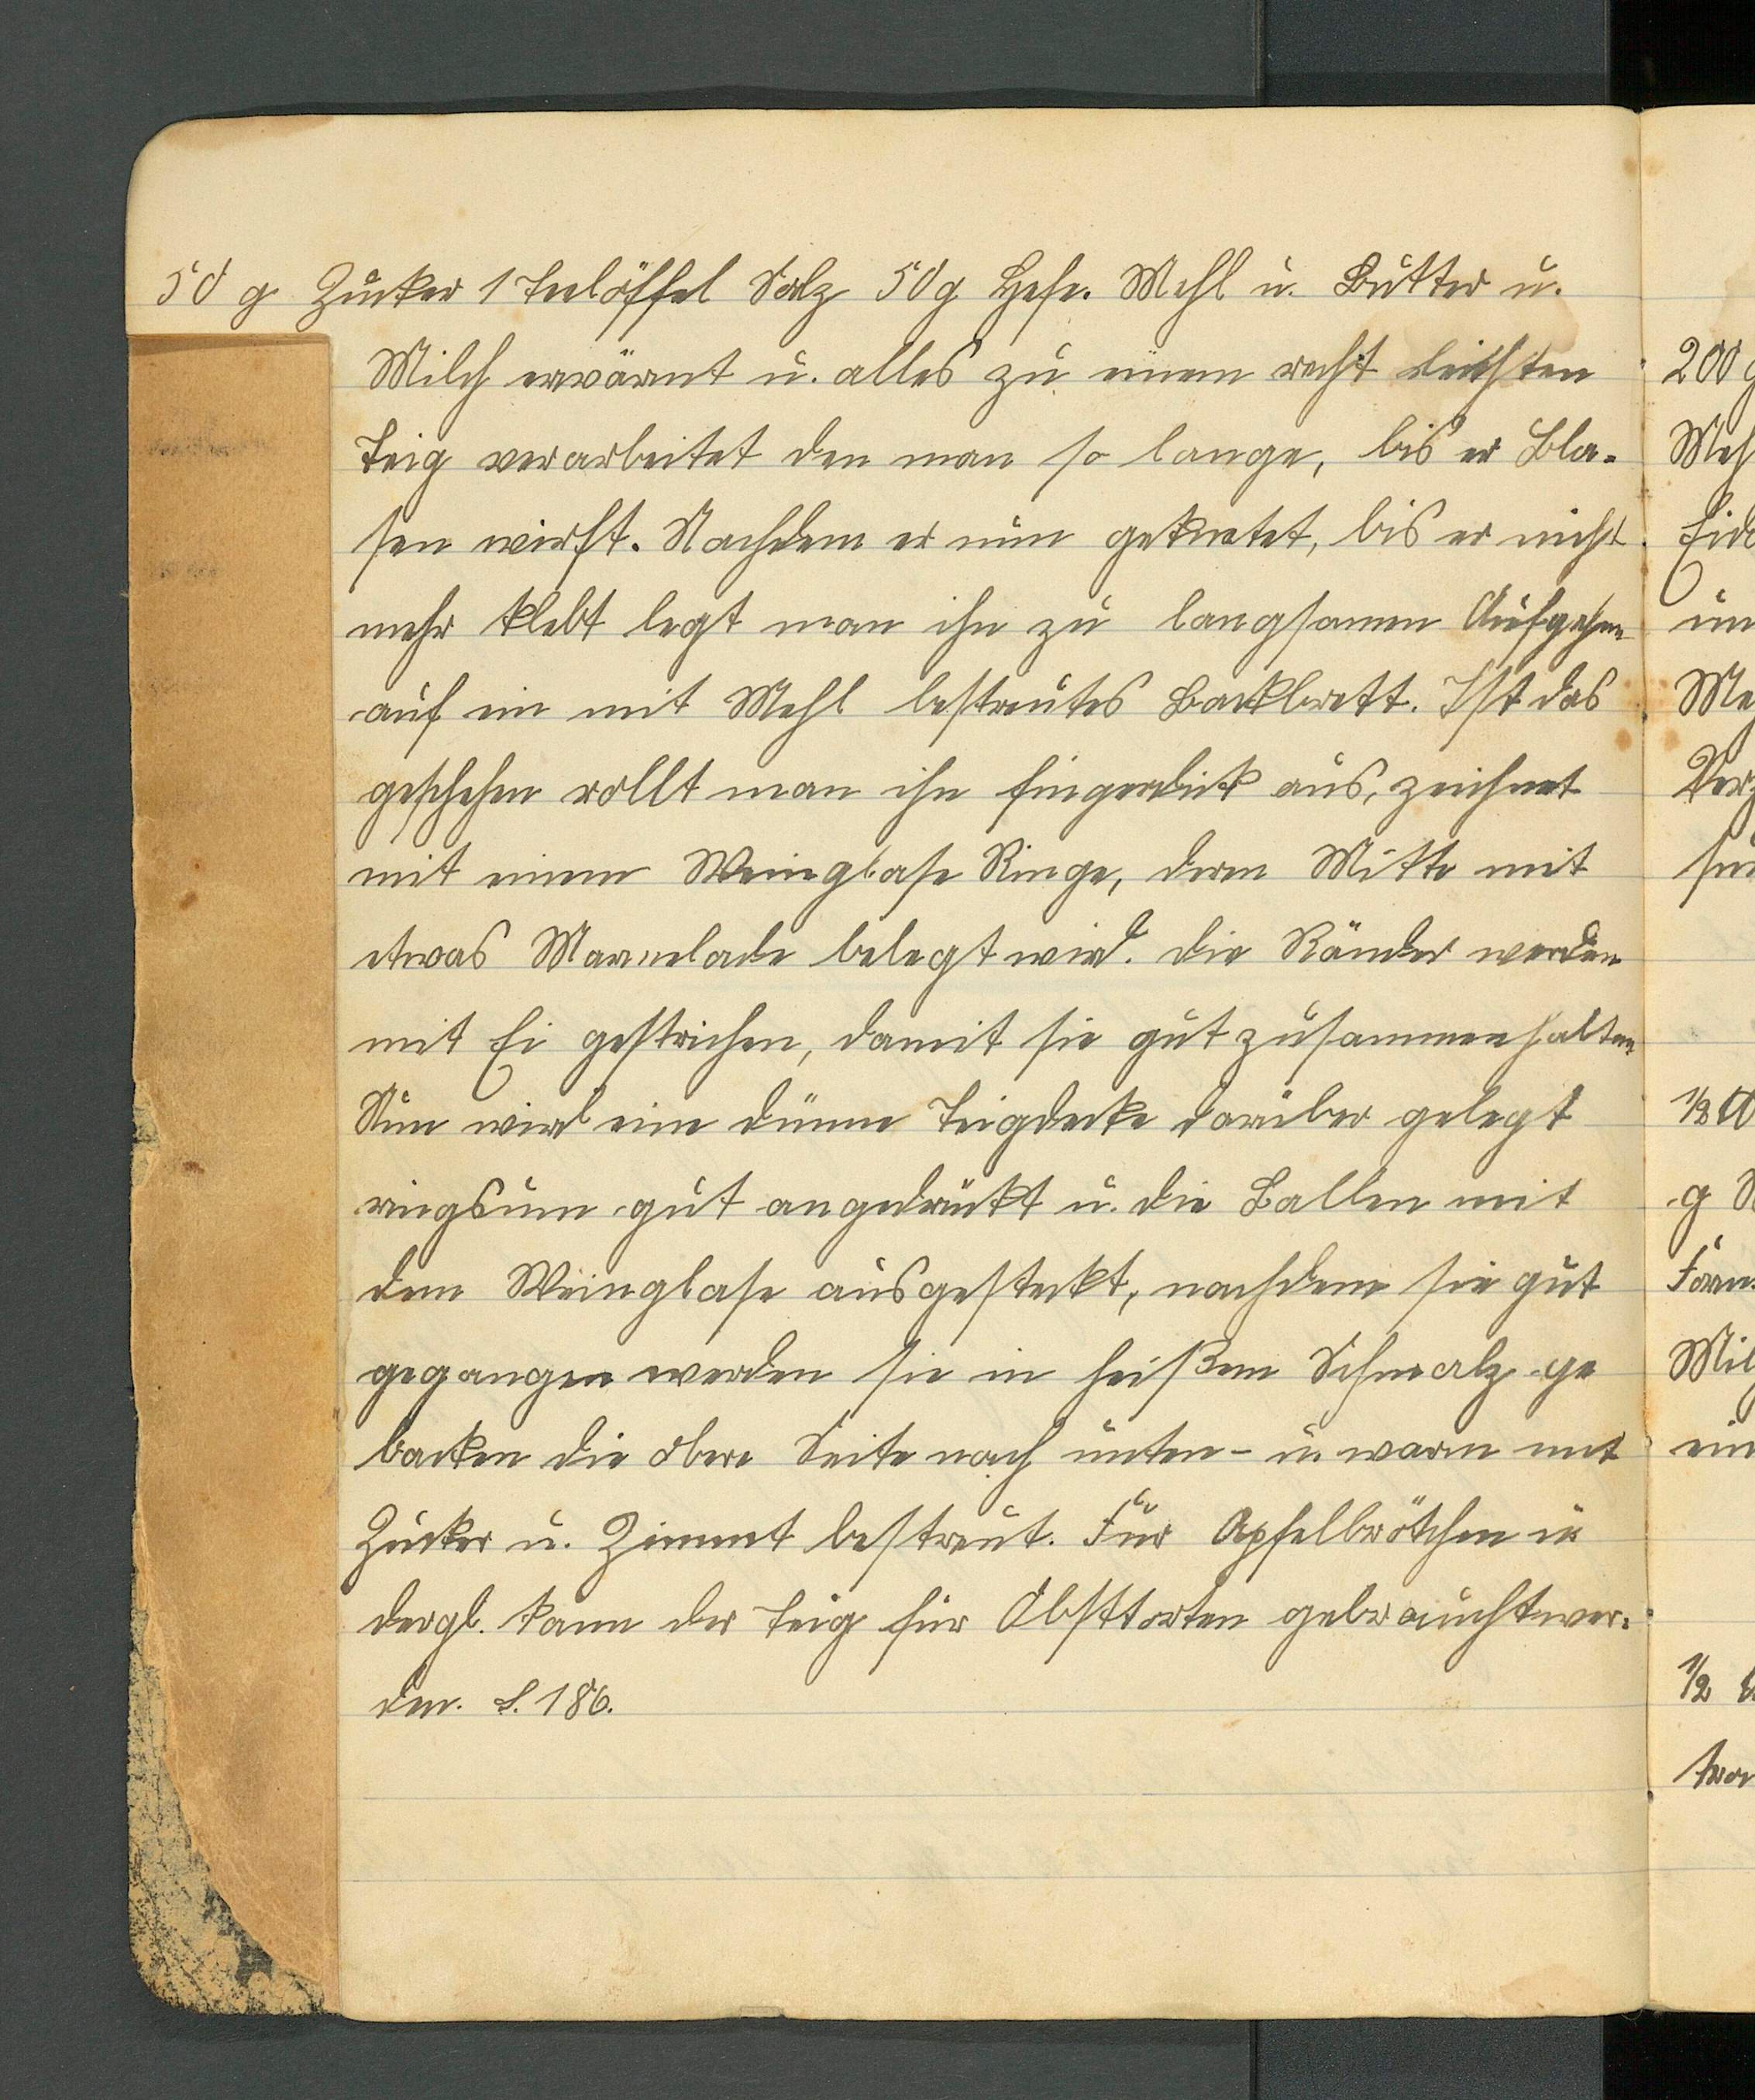 50 g Zucker 1 Teelöffel Salz 50 g Hefe. Mehl u. Butter u.
Milch erwärmt u. alles zu einem recht leichten
Teig verarbeitet den man so lange, bis er Bla-
sen wirft. Nachdem er nun geknetet, bis er nicht
mehr klebt legt man ihn zu langsamen Aufgehen
auf ein mit Mehl bestreutes Backbrett. Ist das
geschehen rollt man ihn fingerdick aus, zeichnet
mit einem Weinglase Ringe, deren Mitte mit
etwas Marmelade belegt wird. die Ränder werden
mit Ei gestrichen, damit sie gut zusammenhalten
Nun wird eine dünne Teigdecke darüber gelegt
ringsum gut angedrückt u. die Ballen mit
dem Weinglase ausgesteckt, nachdem sie gut
gegangen werden sie in heißem Schmalz ge
backen die obere Seite nach unten - u. warm mit
Zucker u. Zimmt bestreut. Für Apfelbrötchen u
dergl. kann der Teig für Obsttorten gebraucht wer-
den. S. 186.
200 g
Meh
Eid
un
Me
Verz
1/2
g
Form
Mil
ein
1/2